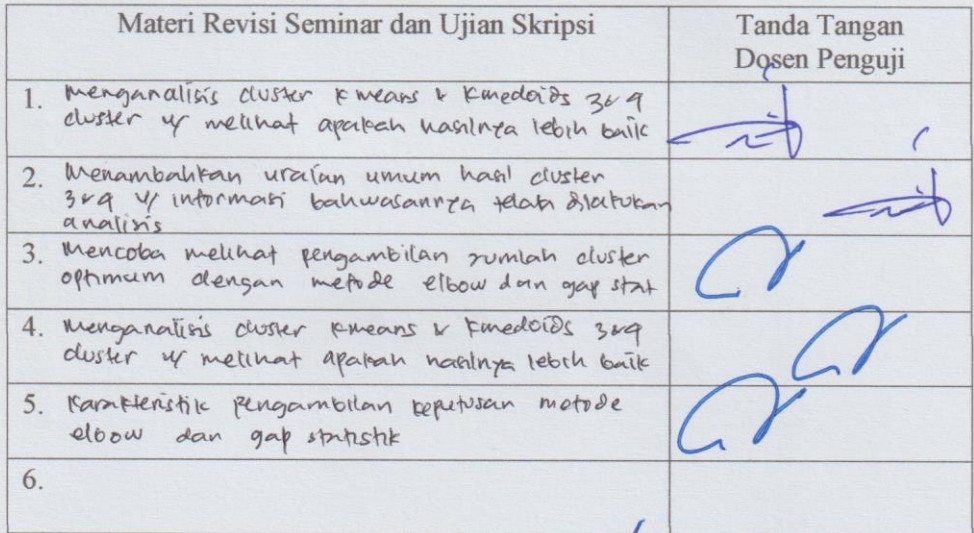 Materi Revisi Seminar dan Ujian Skripsi
Tanda Tangan
Dosen Penguji
1. Menganalisis cluster kmeans & kmedoids 3&4
cluster u/ melihat apakah hasilnya lebih baik
2. Menambahkan uraian umum hasil cluster
3&4 u/ informasi bahwasannya telah dilakukan
analisis
3. Mencoba melihat pengambilan jumlah cluster
optimum dengan metode elbow dan gap stat
4. Menganalisis cluster kmeans & kmedoids 3&4
cluster u/ melihat apakah hasilnya lebih baik
5. Karakteristik pengambilan keputusan metode
elbow dan gap statistik
6.